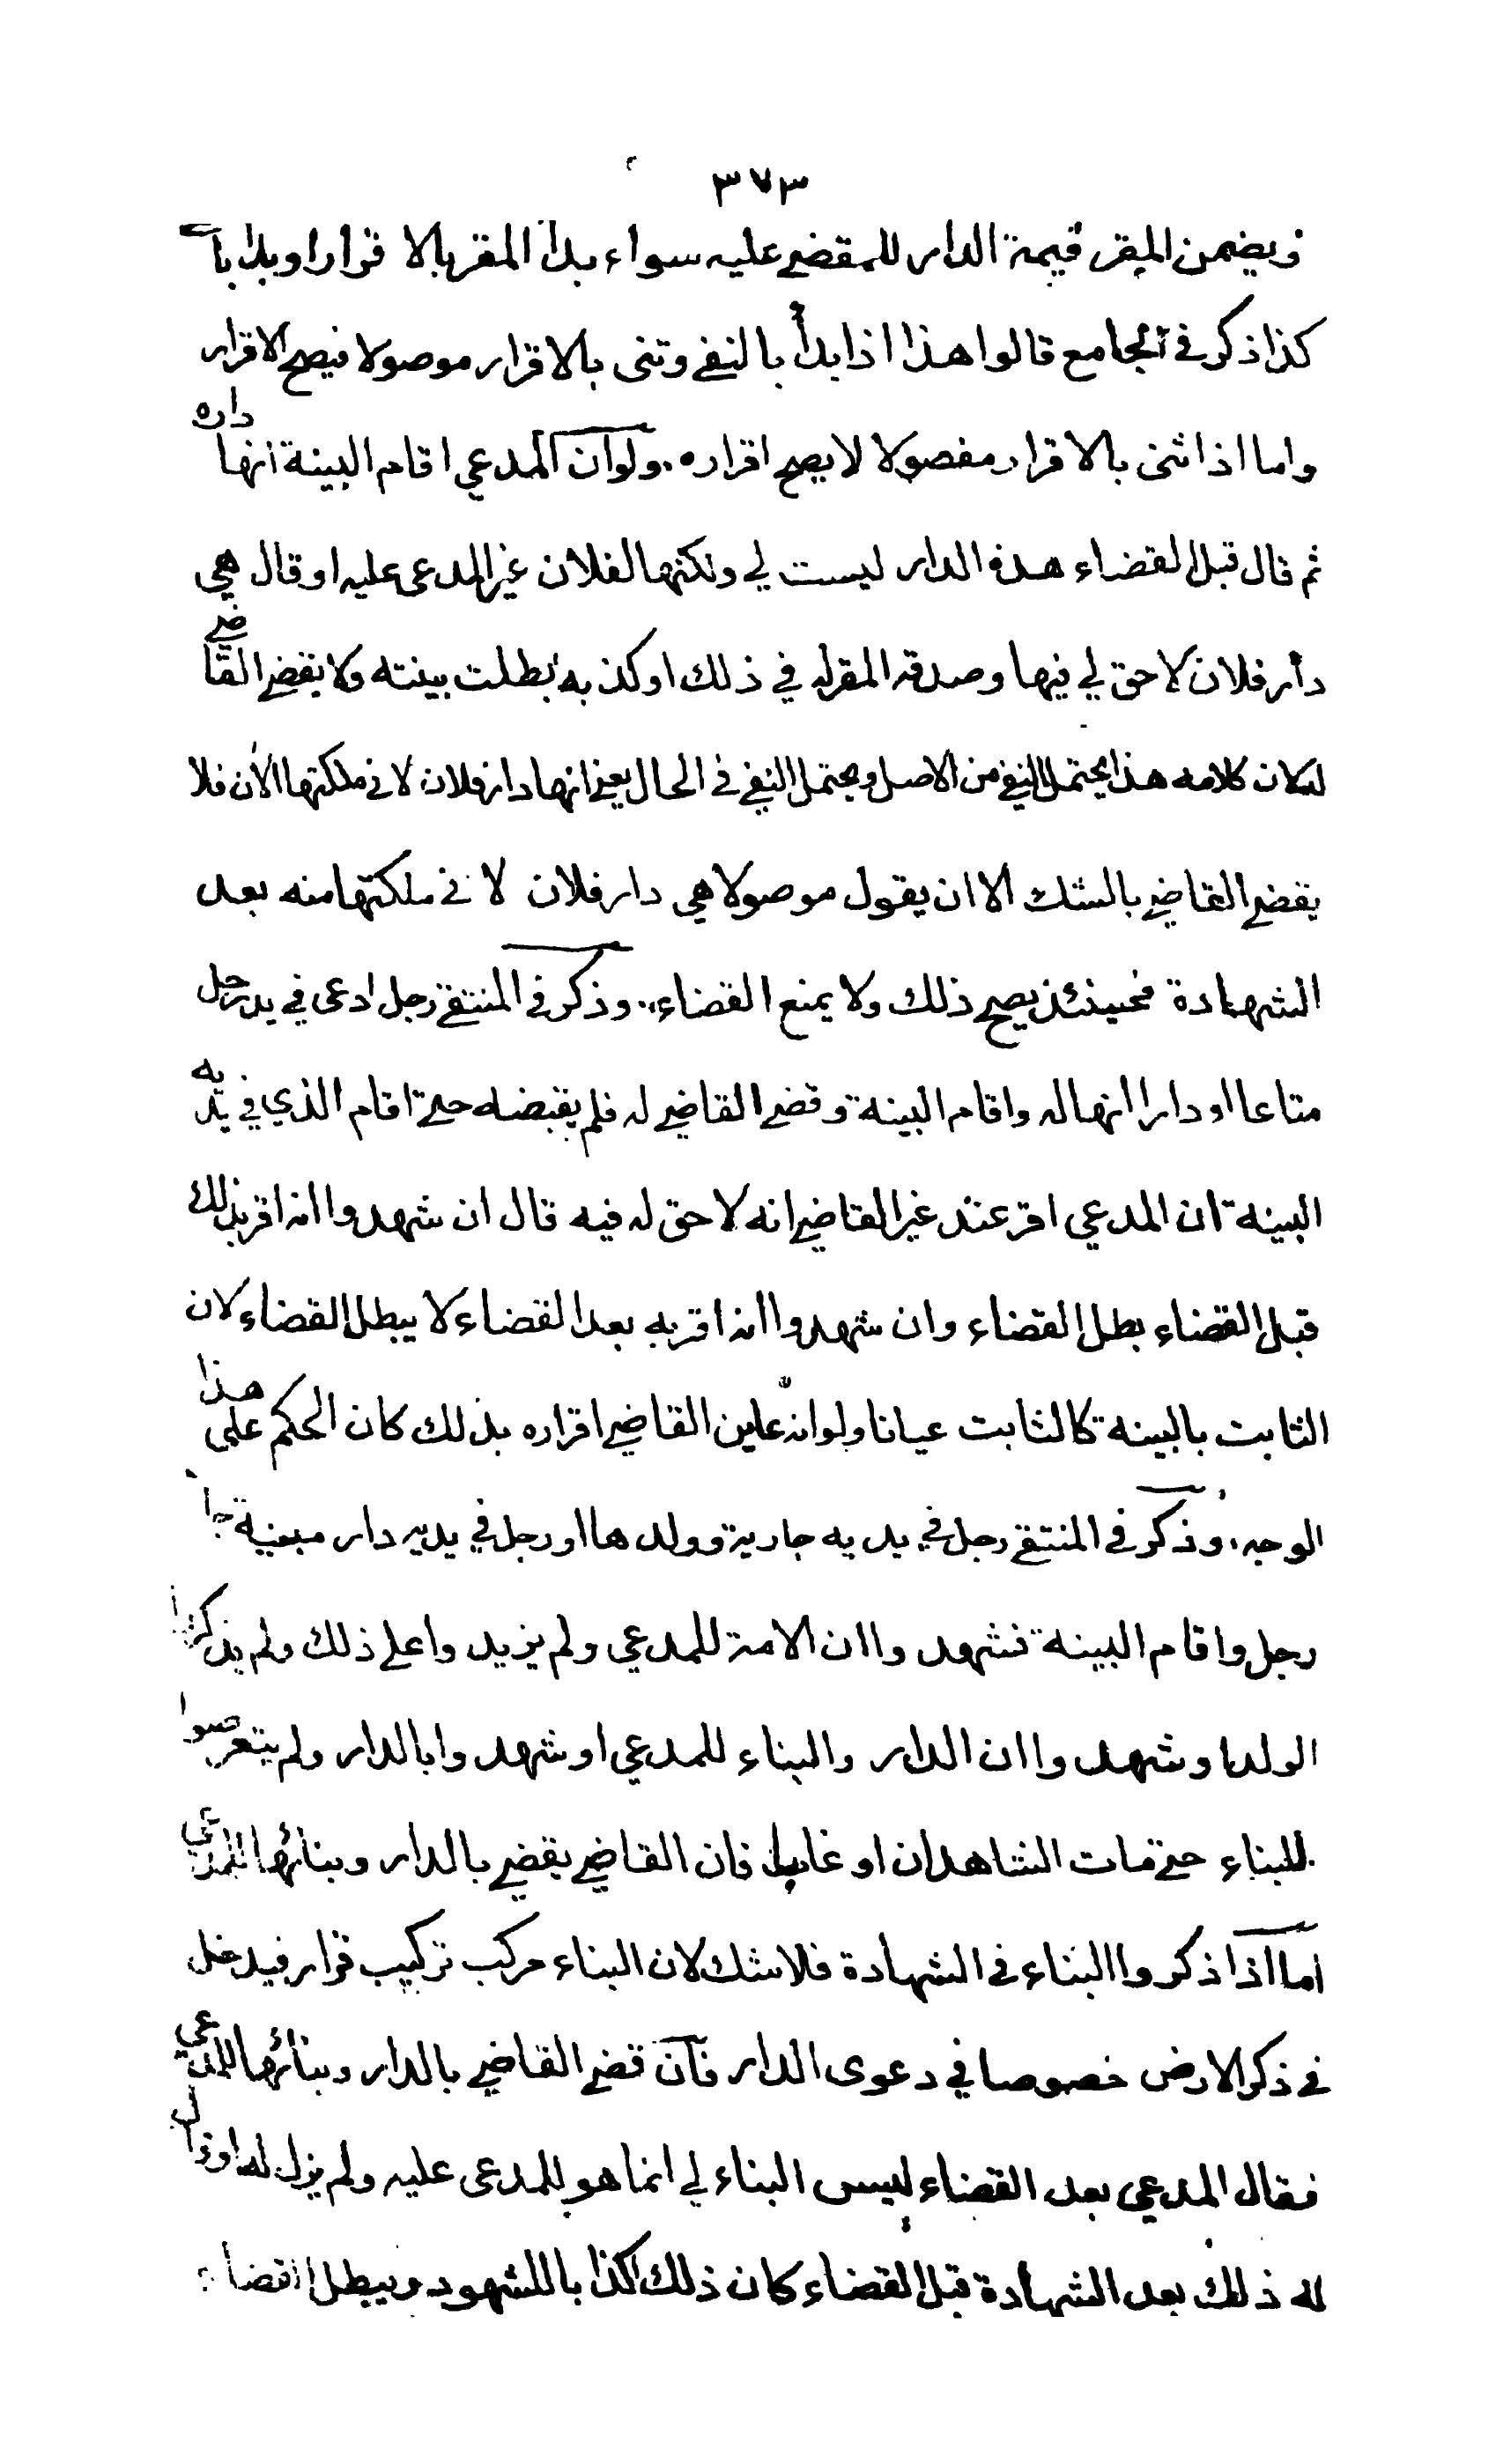 ٣٧٣
ويضمن المقر قيمة الدار للمقضي عليه سواء بدا المقر بالاقرار او بدا با
كذا ذكر في الجامع قالوا هذا اذا بدأ بالنفي وثنى بالاقرار موصولا فيصح الاقرار
واما اذا ثنى بالاقرار مفصولا لا يصح اقراره ولو ان المدعي اقام البينة انها داره
ثم قال قبل القضاء هذه الدار ليست لي ولكنها لفلان غير المدعى عليه او قال هي
دار فلان لا حق لي فيها وصدقه المقر له في ذلك او كذبه بطلت بينته ولا يقضي القاضي
لمكان كلامه هذا يحتمل النفي من الاصل ويحتمل النفي في الحال يعني انها دار فلان لاني ملكتها الان فلا
يقضي القاضي بالشك الا ان يقول موصولا هي دار فلان لاني ملكتها منه بعد
الشهادة فحينئذ يصح ذلك ولا يمنع القضاء وذكر في المنتقى رجل ادعى في يد رجل
متاعا او دارا انها له واقام البينة وقضى القاضي له فلم يقبضه حتى اقام الذي في يديه
البينة ان المدعي اقر عند غير القاضي انه لا حق له فيه قال ان شهدوا انه اقر بذلك
قبل القضاء بطل القضاء وان شهدوا انه اقر به بعد القضاء لا يبطل القضاء لان
الثابت بالبينة كالثابت عيانا ولو انه عاين القاضي اقراره بذلك كان الحكم على هذا
الوجه وذكر في المنتقى رجل في يديه جارية وولدها او رجل في يديه دار مبنية جا
رجل واقام البينة فشهدوا ان الامة للمدعي ولم يزيدوا على ذلك ولم يذكروا
الولد او شهدوا ان الدار والبناء للمدعي او شهدوا بالدار ولم يتعرضوا
للبناء حتى مات الشاهدان او غابا فان القاضي يقضي بالدار وبنائها للمدعي
اما اذا ذكروا البناء في الشهادة فلا شك لان البناء مركب تركيب قرار فيدخل
في ذكر الارض خصوصا في دعوى الدار فان قضى القاضي بالدار وبنائها للمدعي
فقال المدعي بعد القضاء ليس البناء لي انما هو للمدعى عليه ولم يزل له او قال
له ذلك بعد الشهادة قبل القضاء كان ذلك اكذابا للشهود ويبطل القضاء